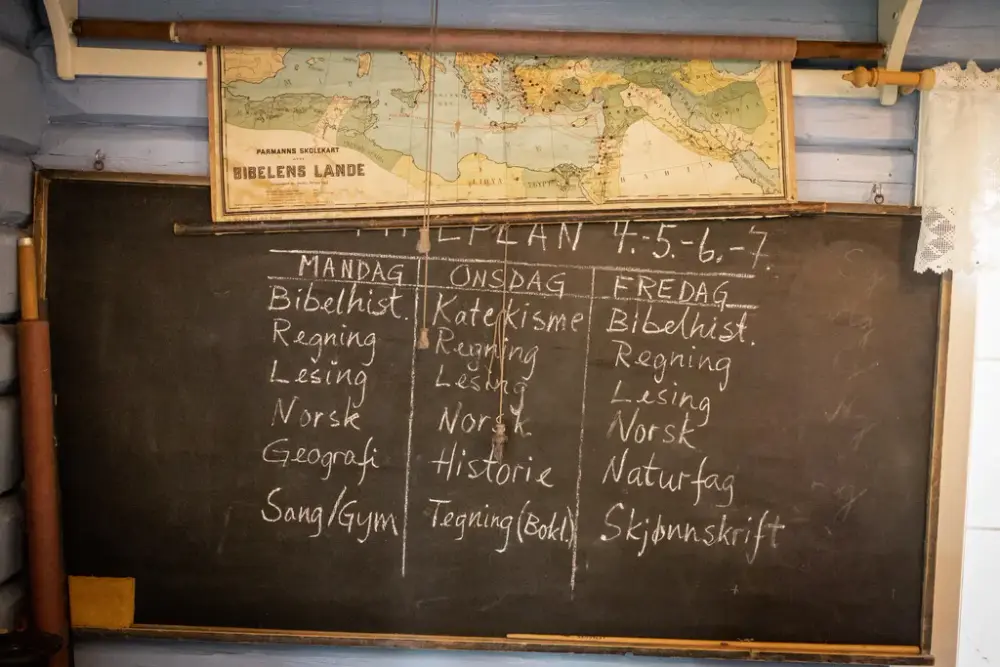 PARMANNS SKOLEKART
BIBELENS LANDE
4.-5.-6.-7.
MANDAG ONSDAG FREDAG
Bibelhist. Katekisme Bibelhist.
Regning Regning Regning
Lesing Lesing Lesing
Norsk Norsk Norsk
Geografi Historie Naturfag
Sang/Gym Tegning (Bokl.) Skjønnskrift